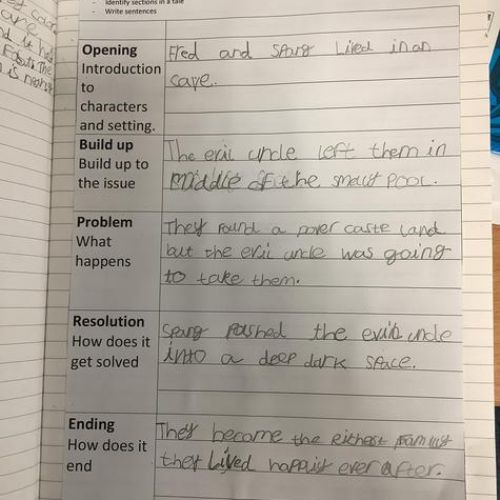 Identify sections in a tale
Write sentences
Opening
Introduction
to
characters
and setting.
Fred and Sparg Lived in an
cave.
Build up
Build up to
the issue
The evil uncle left them in
middle of the smart Pool.
Problem
What
happens
They found a caste land
but the evil uncle was going
to take them.
Resolution
How does it
get solved
Sparg pashed the evil uncle
into a deep dark space.
Ending
How does it
end
They became the richest family
they Lived happily ever after.